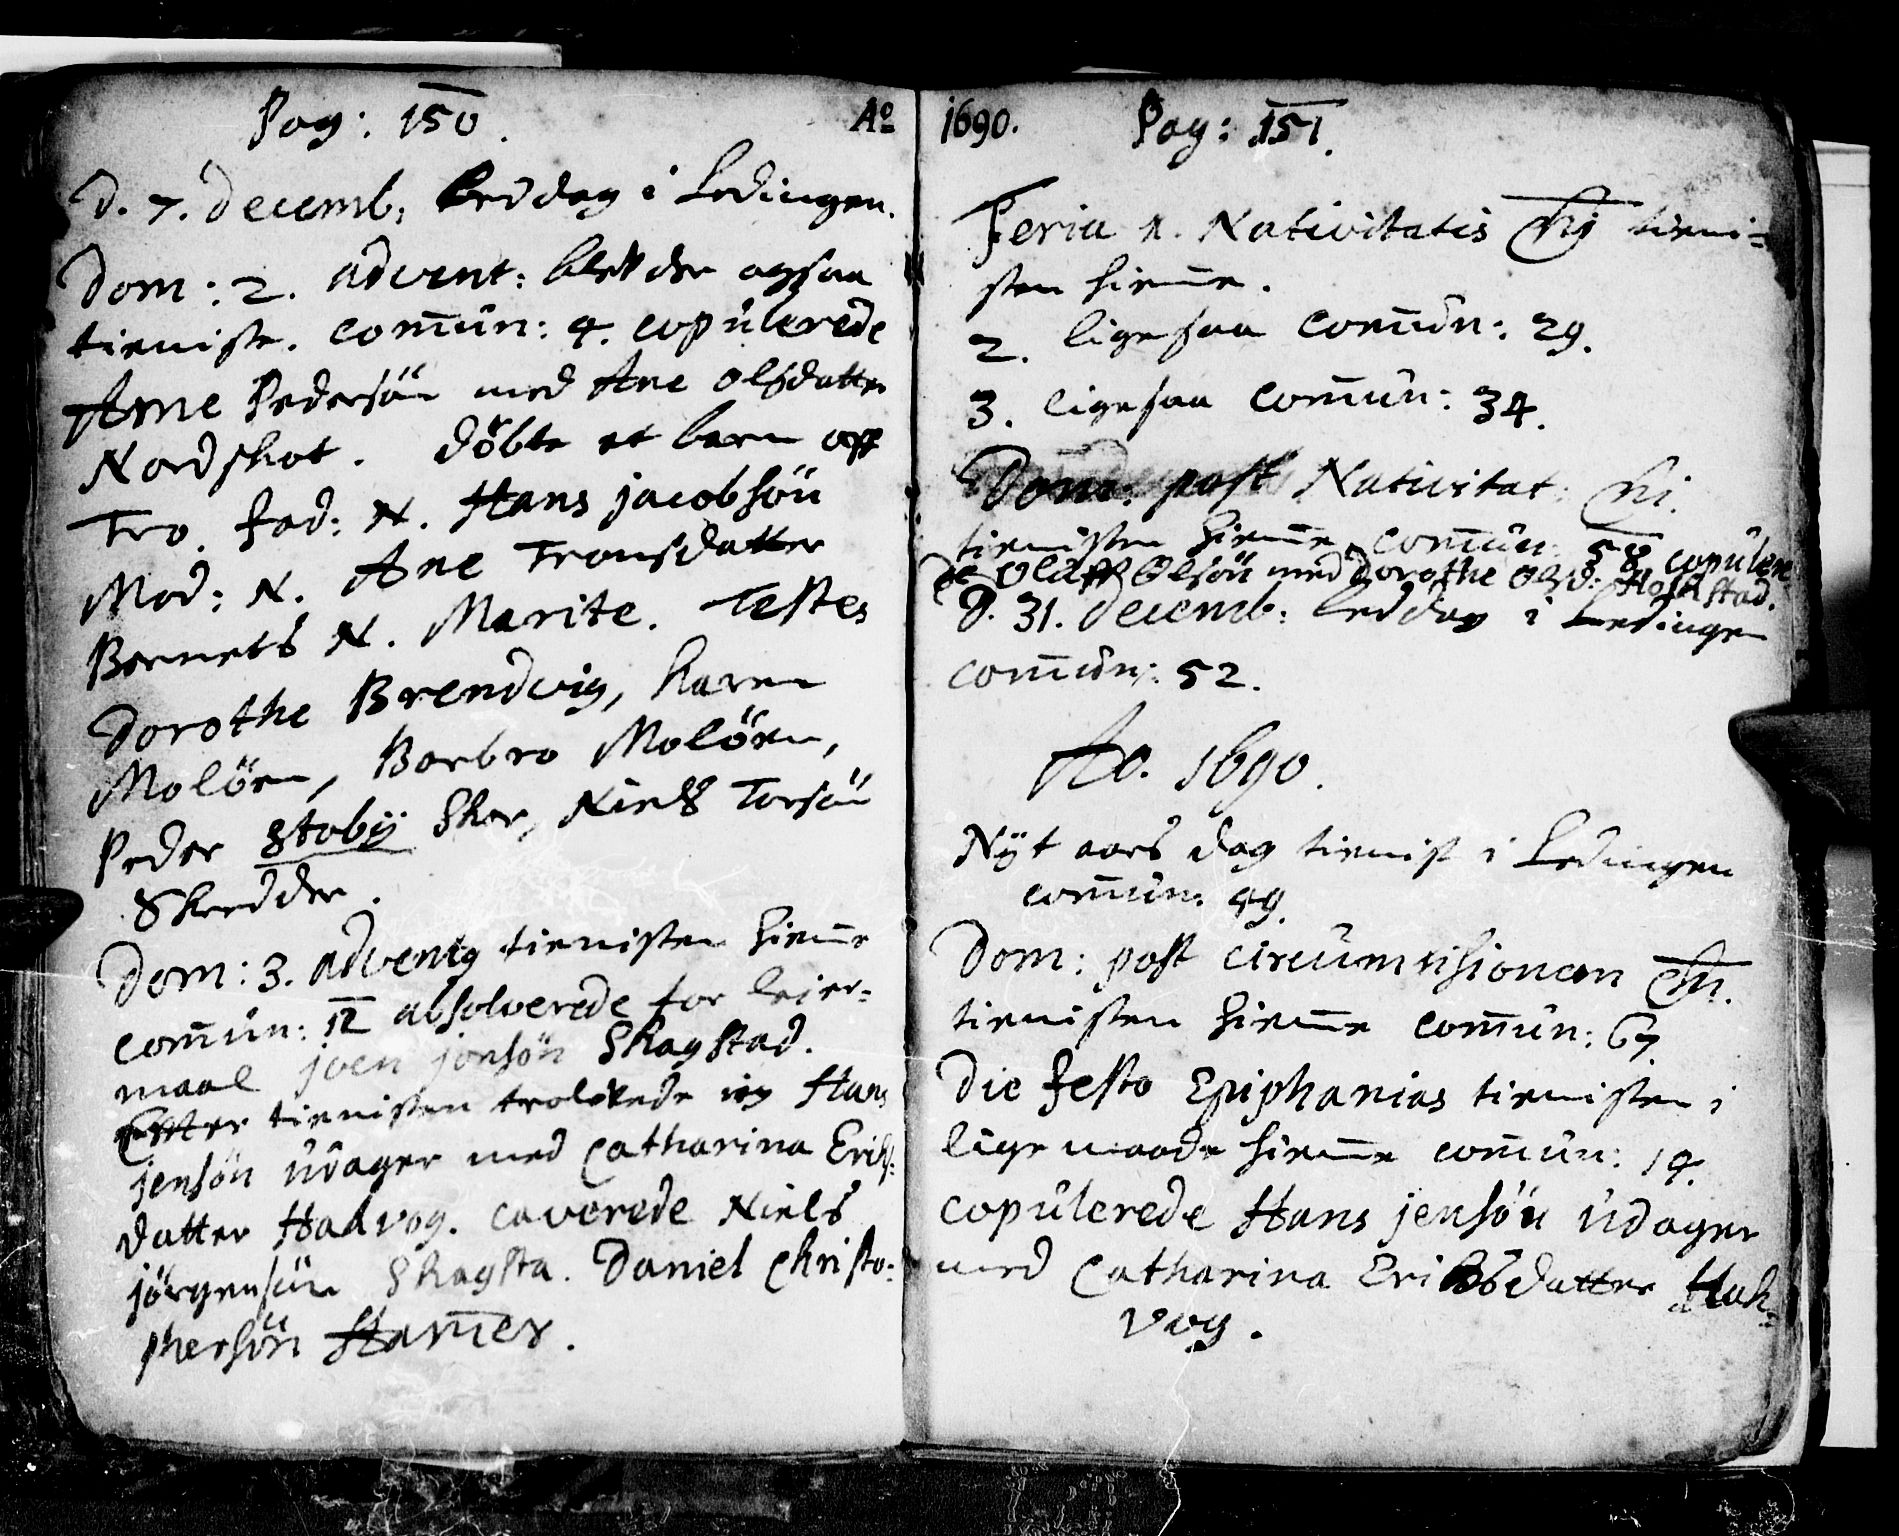 Pag: 150.
D. 7. Decemb: beddag i Ledingen.
Dom: 2. advent: blef der ogsaa
tieniste. com̄un: 4. copulerede
Arne Pedersön med Ane Olsdatter
Nordskot. Döbte et barn aff
Tro. fad: N. Hans jacobsön
Mod: N. Ane Tronsdatter
Bernets N. Marite. Testes
Dorothe Brendvig, karen
Molöen, Barbro Molöen,
Peder Stobÿ Skor, Niels Torsön
Skredder.
Dom: 3. adventq tienisten hiem̄e
com̄un: 12 absolverede for leier-
maal joen jonsön Skagstad.
Efter tienisten trolovede ieg Hans
jensön Udager med Catharina Erichs:
datter Hadvog. caverede Niels
jörgensön Skagsta. Daniel Christo-
phersön Ham̄er.
Ao 1690. Pag: 151.
Feria 1. Nativitatis Chj tieni-
sten hiem̄e.
2. ligesaa com̄un: 29.
3. ligesaa com̄un: 34.
Dom: post Nativitat: Chi.
tienisten hiem̄e com̄un: 58 copulere
de Olaff Olsön med Dorothe Olsd:
D. 31. Decemb: beddag i Ledingen
com̄un: 52.
Ao. 1690.
Nÿt aars dag tienist i Ledingen
com̄un: 49.
Dom: post circumcisionem Chi.
tienisten hiem̄e com̄un: 67.
Die festo Epiphanias tienisten i
lige maade hiem̄e com̄un: 14.
copulerede Hans jensön Udager
med Catharina Erichsdatter Hah-
vog.